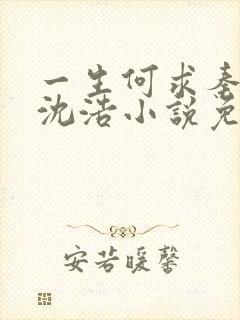 一生何求秦
沈浩小說免
安若暖馨